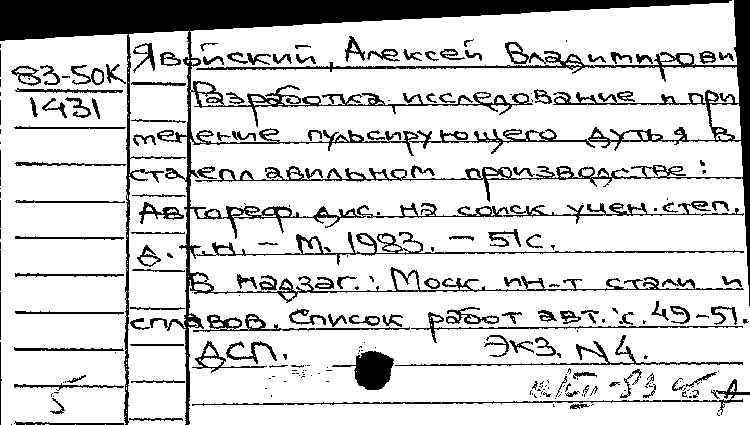 83-50К
1431
Явойский, Алексей Владимирови
Разработка, исследование и при
менение пульсирующего дутья в
сталеплавильном производстве:
Автореф. дис. на соиск. учен. степ.
д.т.н. – М., 1983. – 51с.
В надзаг.: Моск. ин-т стали и
сплавов. Список работ авт.: с. 49-51.
ДСП. Экз. N4.
5